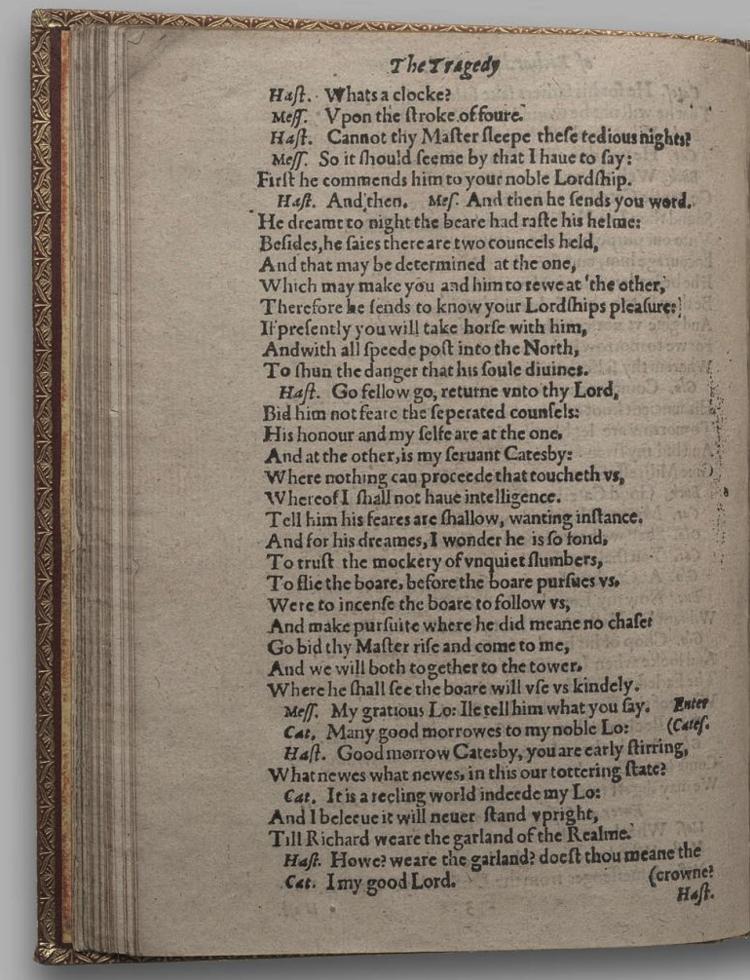 The Tragedy
Haſt. Whats a clocke?
Meſſ. Vpon the ſtroke of foure.
Haſt. Cannot thy Maſter ſleepe theſe tedious nights?
Meſſ. So it ſhould ſeeme by that I haue to ſay:
Firſt he commends him to your noble Lordſhip.
Haſt. And then. Meſ. And then he ſends you word.
He dreamt to night the beare had raſte his helme:
Beſides, he ſaies there are two councels held,
And that may be determined at the one,
Which may make you and him to rewe at the other,
Therefore he ſends to know your Lordſhips pleaſure:
If preſently you will take horſe with him,
And with all ſpeede poſt into the North,
To ſhun the danger that his ſoule diuines.
Haſt. Go fellow go, returne vnto thy Lord,
Bid him not feare the ſeperated counſels:
His honour and my ſelfe are at the one,
And at the other, is my ſeruant Catesby:
Where nothing can proceede that toucheth vs,
Whereof I ſhall not haue intelligence.
Tell him his feares are ſhallow, wanting inſtance.
And for his dreames, I wonder he is ſo fond,
To truſt the mockery of vnquiet ſlumbers,
To flie the boare, before the boare purſues vs,
Were to incenſe the boare to follow vs,
And make purſuite where he did meane no chaſe:
Go bid thy Maſter riſe and come to me,
And we will both together to the tower.
Where he ſhall ſee the boare will vſe vs kindely.
Meſſ. My gratious Lo: Ile tell him what you ſay. Enter
Cat. Many good morrowes to my noble Lo: (Cateſ.
Haſt. Good morrow Catesby, you are early ſtirring,
What newes what newes, in this our tottering ſtate?
Cat. It is a reeling world indeede my Lo:
And I beleeue it will neuer ſtand vpright,
Till Richard weare the garland of the Realme.
Haſt. Howe? weare the garland? doeſt thou meane the
Cat. I my good Lord. (crowne?
Haſt.